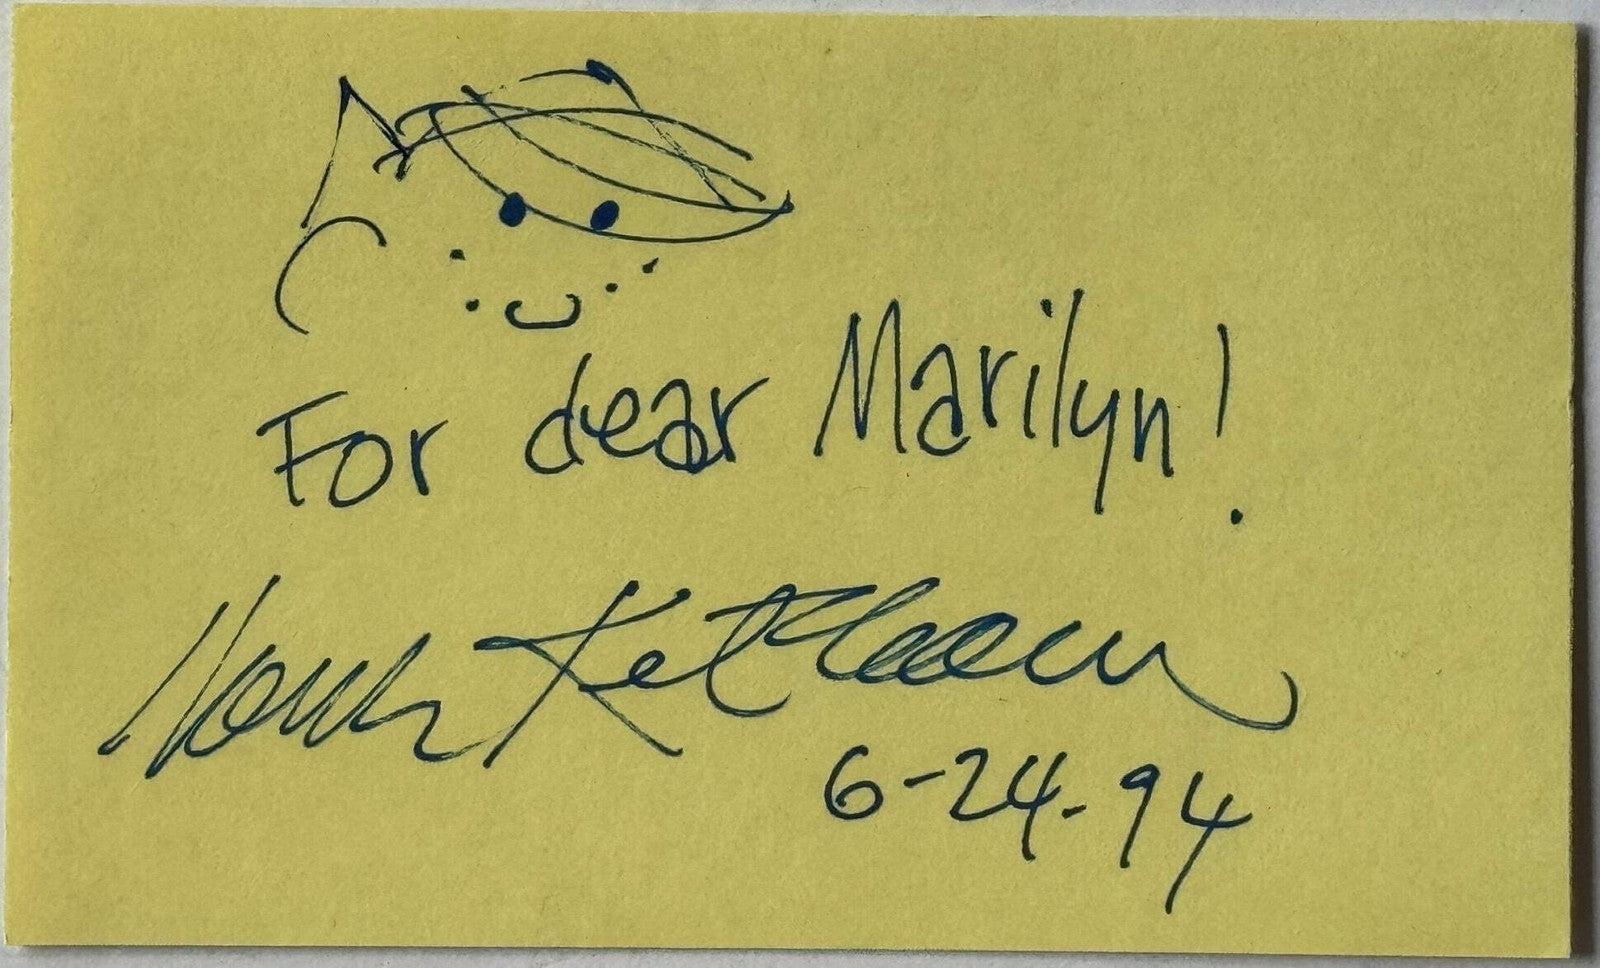 For dear Marilyn!
Hank Ketcham
6-24-94